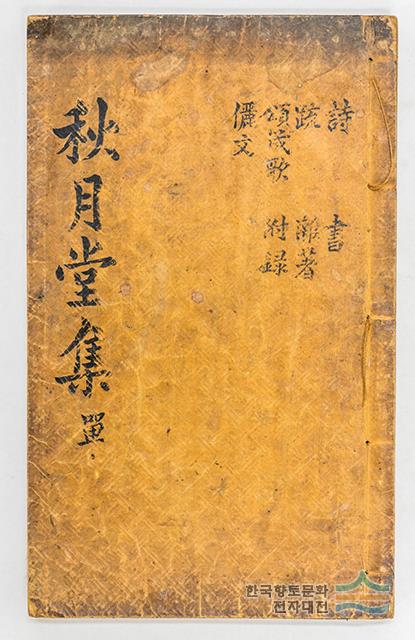 詩 書
疏 雜著
頌箴歌 附録
儷文
秋月堂集 單
한국향토문화
전자대전